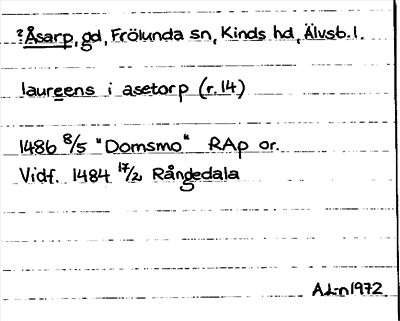 ? Åsarp, gd, Frölunda sn, Kinds hd, Älvsb. l.
laureens i asetorp (r. 14)
1486 8/5 "Domsmo" RAp or.
Vidf. 1484 17/2 Rångedala
A.L-n 1972